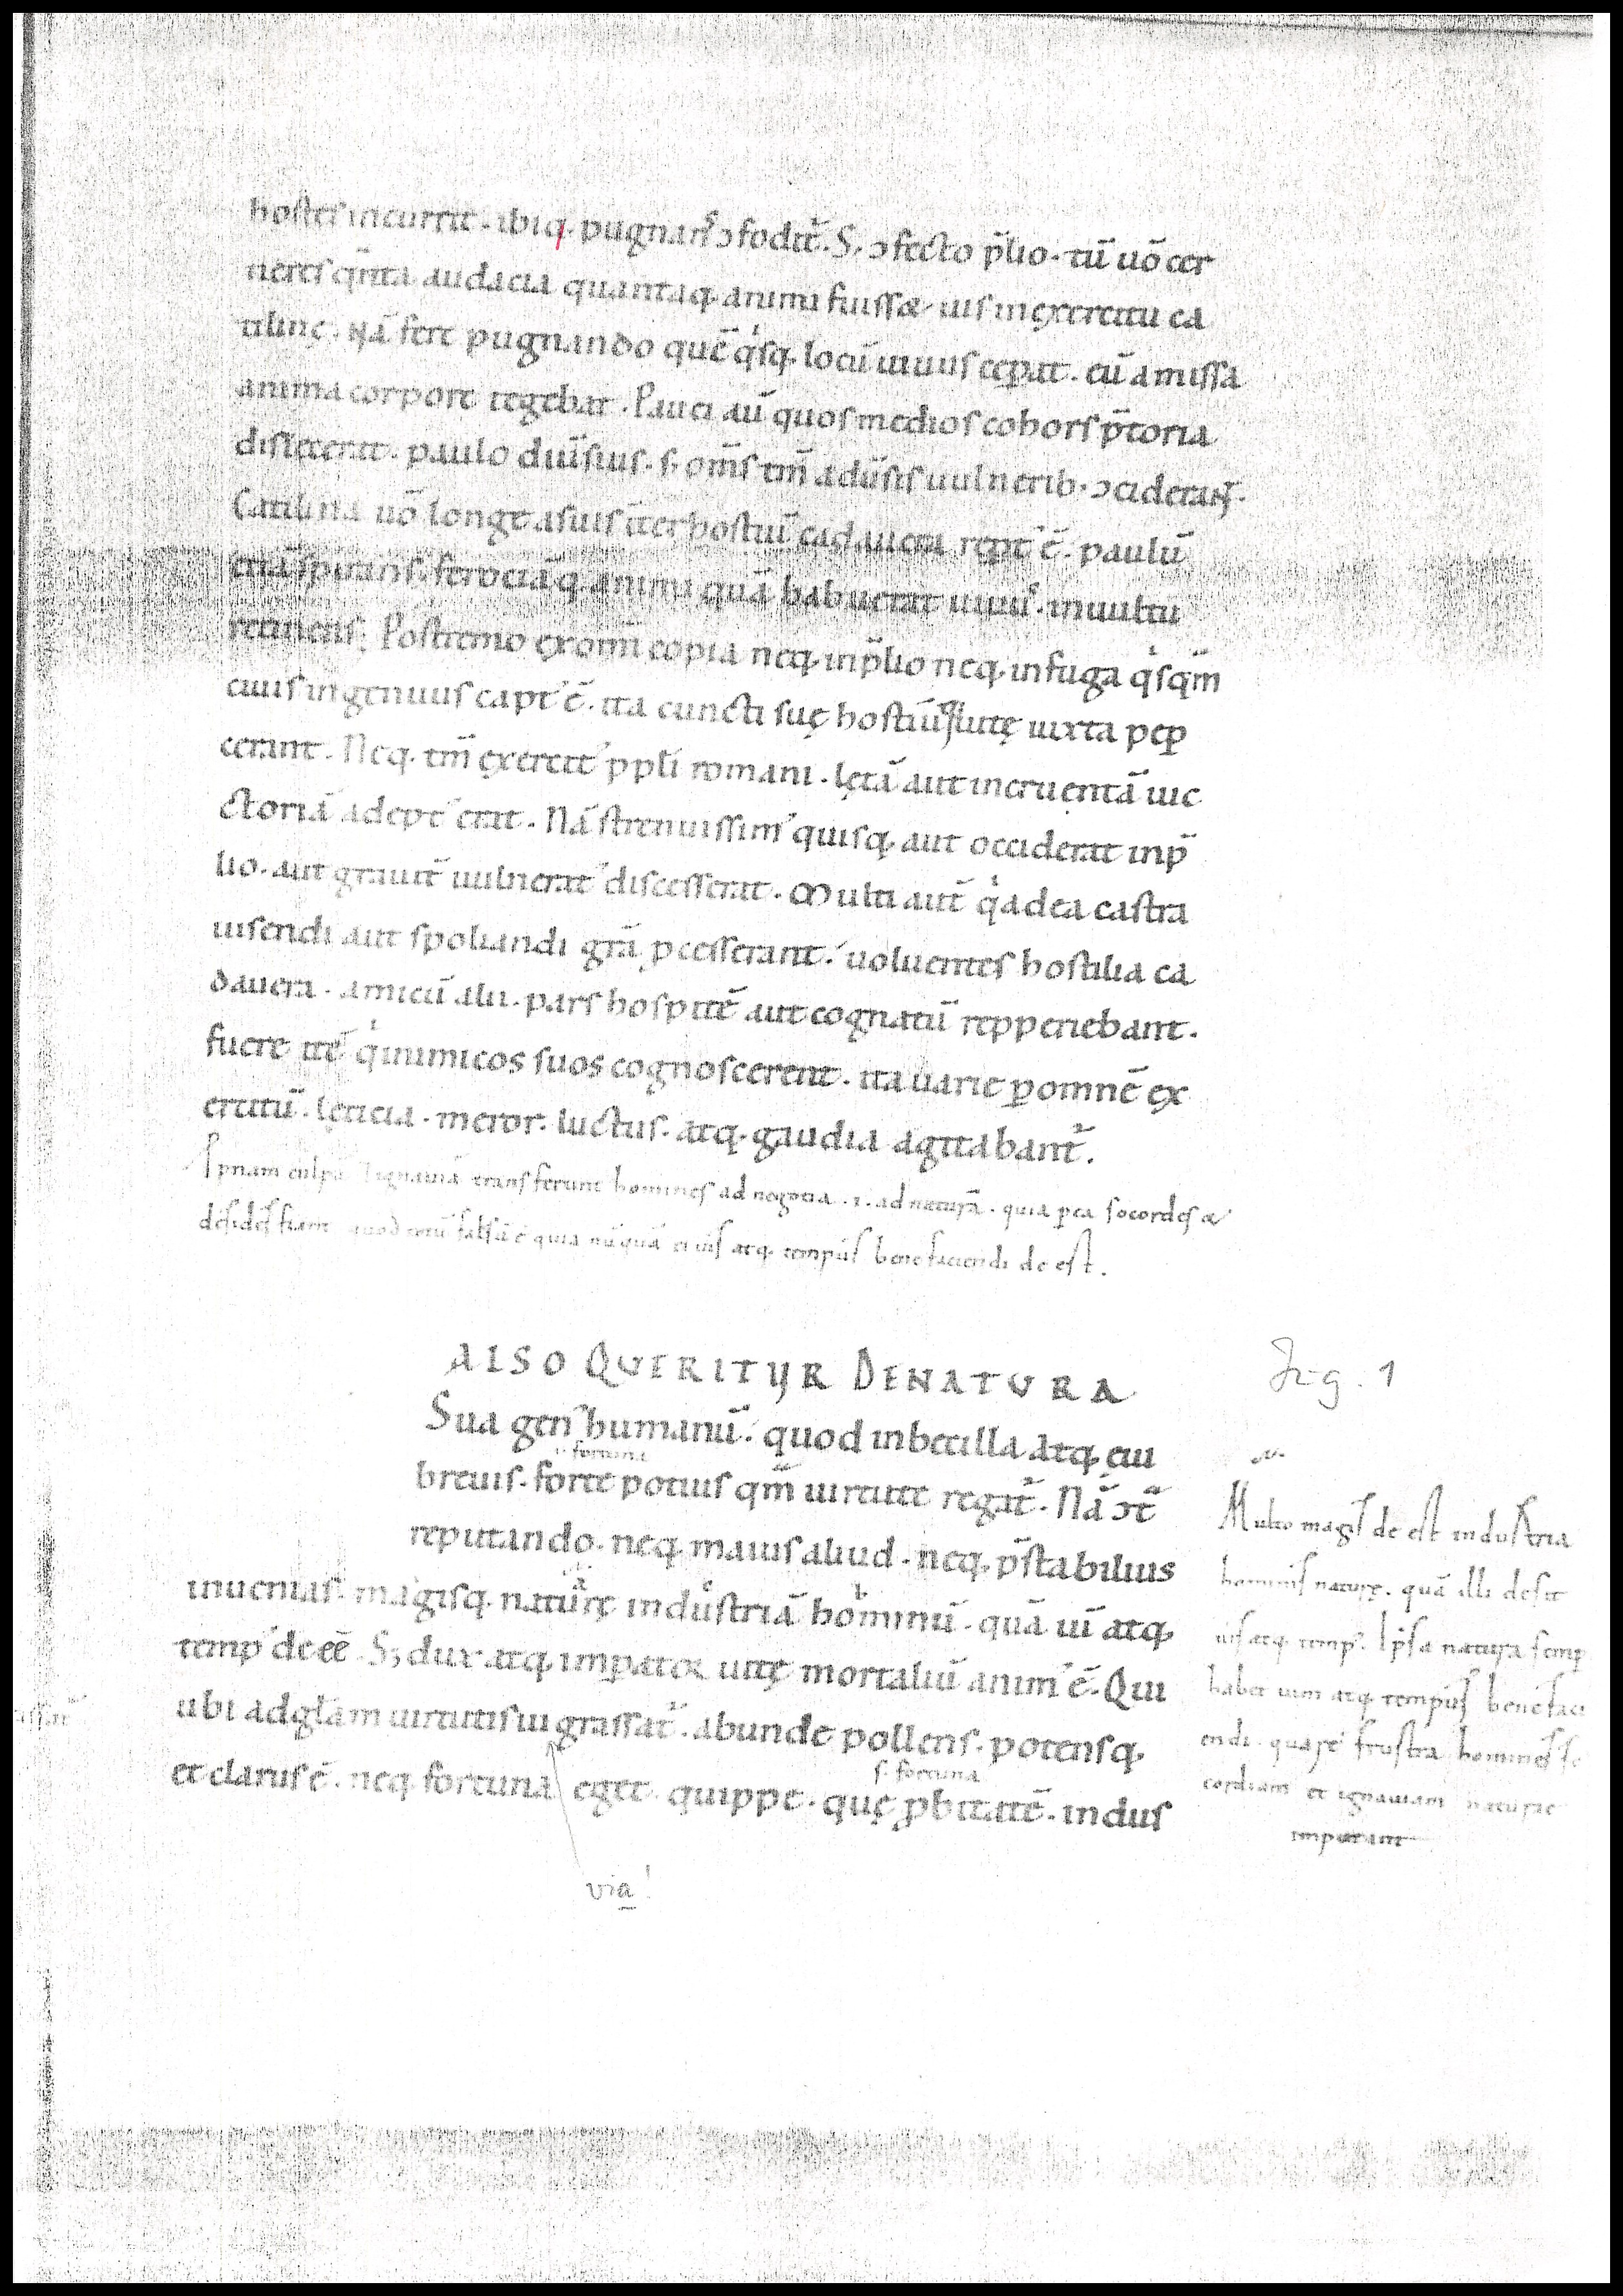 hostes incurrit. ibiq; pugnans ɔfoditᷣ. S; ɔfecto p̄lio. tū uō cer
neres q̄nta audacia quantaq; animi fuissæ uis in exercitu ca
tiline. Nā fere pugnando quē qͥsq; locū uiuus cep̱at. eū amissa
anima corpore tegebat. Pauci aū quos medios cohors p̄toria
disiecerat. paulo diūsius. s; om̄s tm̄ adus̄is uulnerib; ɔciderant.
Catilina uō longe a suis īter hostiū cadauera rep̱t' ē. paulū
etiā spirans. ferociāq; animi quā habuerat uiuus. in uultu
retinens. Postremo ex omī copia neq; in p̄lio neq; in fuga qͥsq̄m
ciuis ingenuus capt' ē. ita cuncti suę hostiūq; uitę iuxta pep̱
cerant. Neq; tm̄ exercit' ppl̄i romani. lętā aut incruentā uic
ctoriā adept' erat. Nā strenuissim' quisq; aut occiderat in p̄
lio. aut grauit̄ uulnerat' discesserat. Multi aut̄ qͥ adea castra
uisendi aut spoliandi grā pcesserant. uoluentes hostilia ca
dauera. amicū alii. pars hospitē aut cognatū repperiebant.
fuere itē qͥ inimicos suos cognoscerent. ita uarie p̱ omnē ex
ercitū. lęticia. meror. luctus. atq; gaudia agitabantᷣ.
culpā ignauiā transferunt homines ad negotia. i. ad naturā. quia p̱ ea socordes æ
desides fiant quod totū falsū ē quia nūquā ei uis atq; tempus benefaciendi de est.
ALSO QUERITUR DENATURA
Sua gen' humanū. quod inbecilla atq; eui
fortuna
breuis. forte potius qm̄ uirtute regatᷣ. Nā ɔt̄
reputando. neq; maius aliud. neq; p̄stabilius
inuenias. magisq; naturę industriā hominū. quā uī atq;
temp' de eē. S; dux atq; imp̱ator uitę mortaliū anim' ē. Qui
ubi ad gl̄am uirtutis ui grassatᷣ. abunde pollens. potensq;
s. fortuna
et clarus ē. neq; fortuna eget. quippe. quę pbitatē. indus
via!
Fig. 1
Multo magis de est industria
hominis naturę. quā illi desit
uis atq; temp'. Ipsa natura semp̱
habet uim atq; tempus benefaci
endi. quare frustra homines so
cordiam et ignauiam naturae
imputant